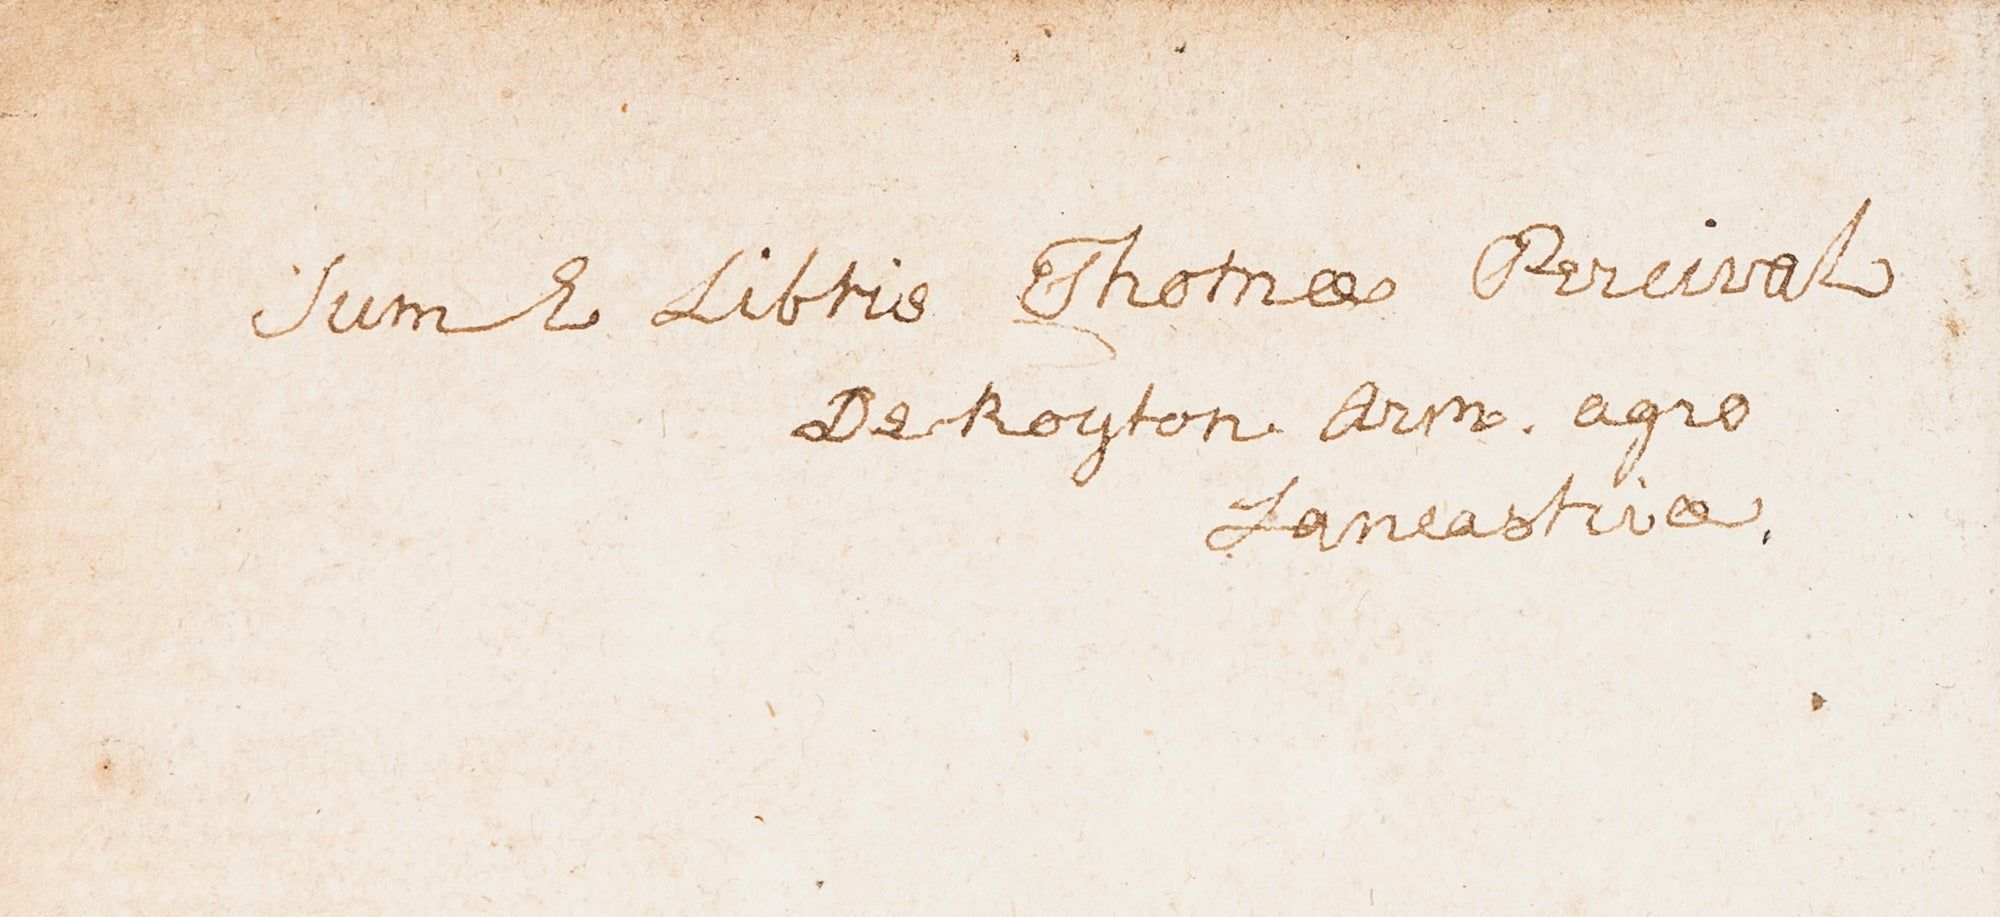 Sum E Libris Thomæ Percival
De Royton Arm. agro
Lancastriæ.